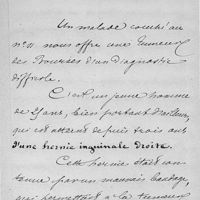 Un malade couché au
n° 11 nous offre une tumeur
des Bourses d'un diagnostic
difficile.
C'est un jeune homme
de ans, bien portant d'ailleurs,
qui est atteint depuis trois ans
d'une hernie inguinale droite.
Cette hernie était con-
tenue par un mauvais bandage,
qui permettait à la tumeur